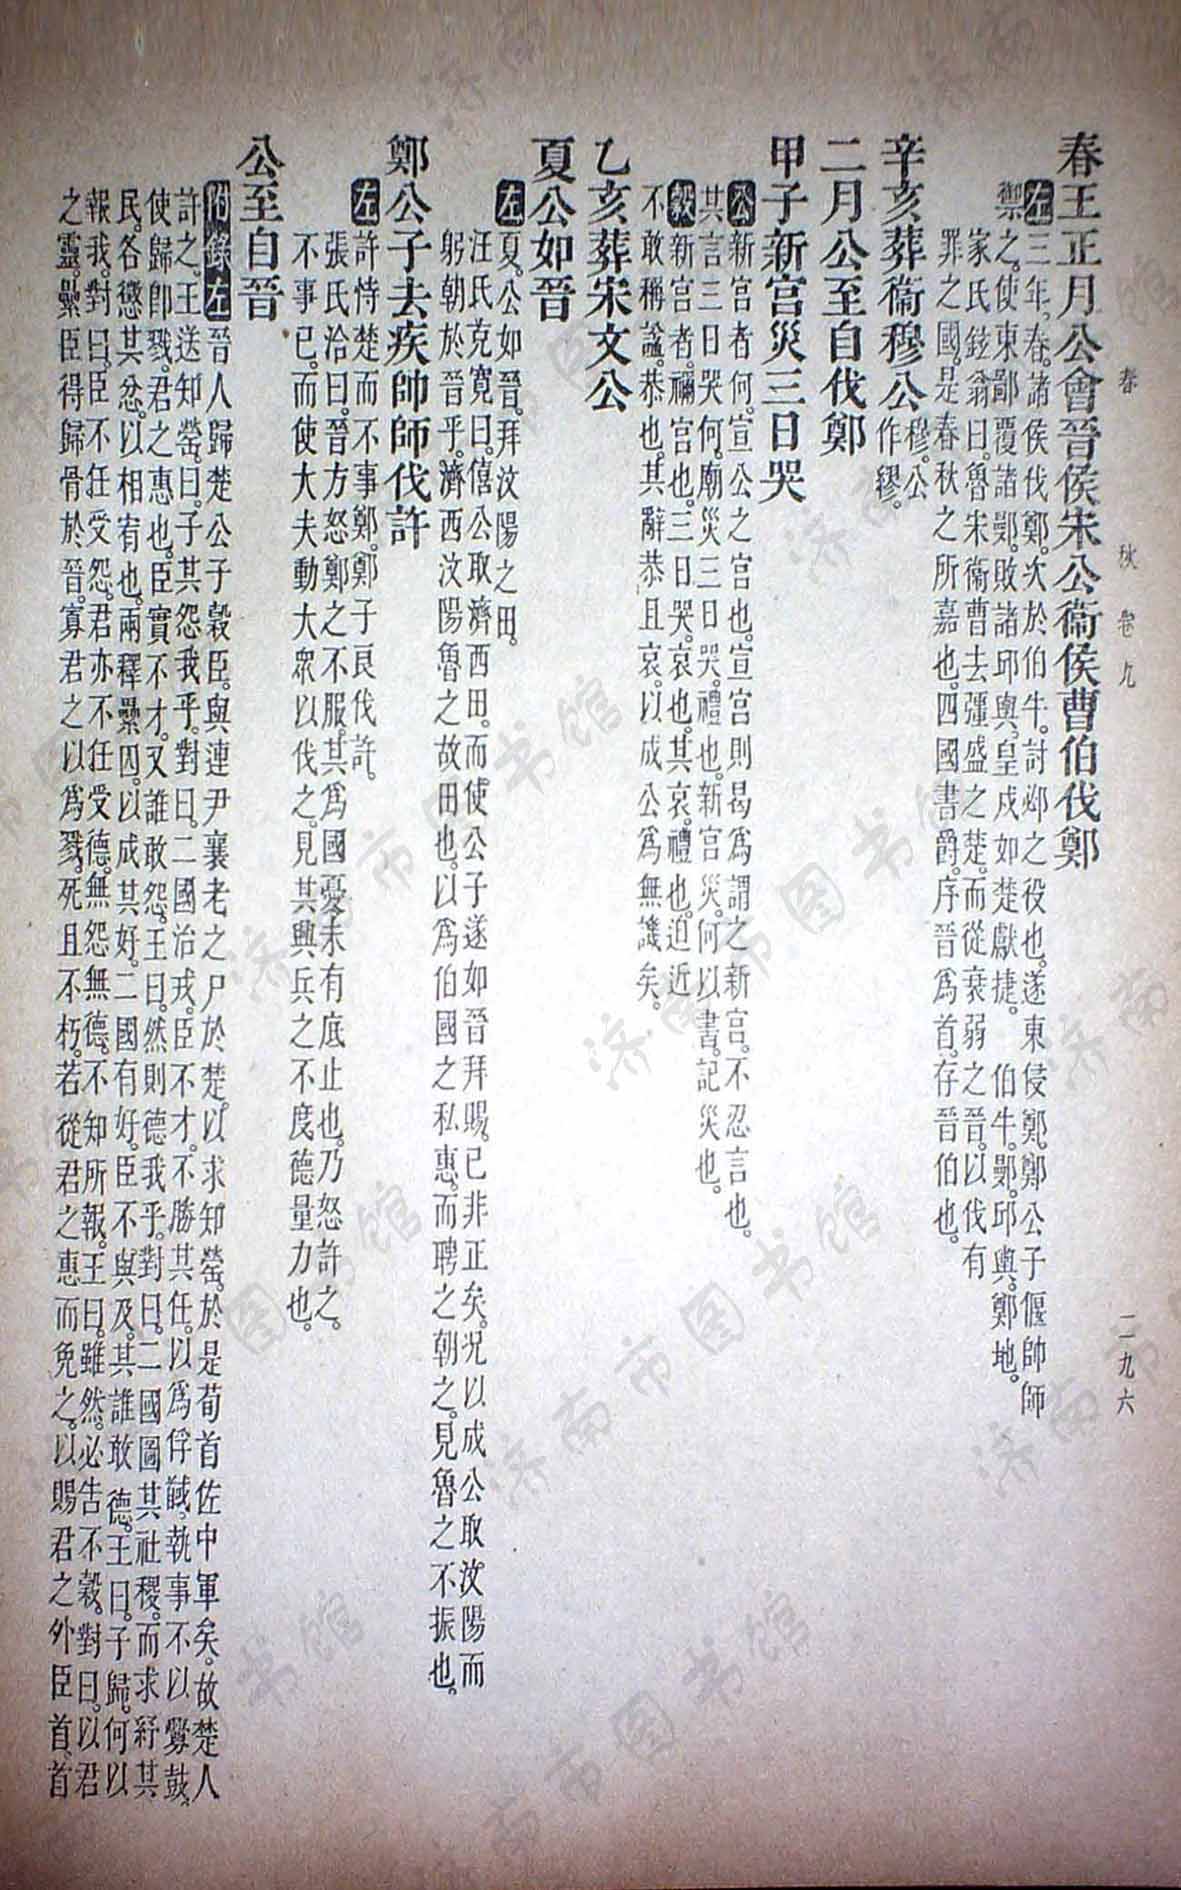 春秋 卷九 二九六
春王正月公會晉侯宋公衞侯曹伯伐鄭
左三年春。諸侯伐鄭。次於伯牛。討邲之役也。遂東侵鄭。鄭公子偃帥師
禦之。使東鄙覆諸鄤。敗諸邱輿。皇戌如楚獻捷。 伯牛。鄤。邱輿。鄭地。
家氏鉉翁曰。魯宋衞曹去彊盛之楚。而從衰弱之晉。以伐有
罪之國。是春秋之所嘉也。四國書爵。序晉爲首。存晉伯也。
辛亥葬衞穆公 穆。公
作繆。
二月公至自伐鄭
甲子新宮災三日哭
公新宮者何。宣公之宮也。宣宮則曷爲謂之新宮。不忍言也。
其言三日哭何。廟災三日哭。禮也。新宮災。何以書。記災也。
穀新宮者。禰宮也。三日哭。哀也。其哀。禮也。迫近
不敢稱諡。恭也。其辭恭且哀。以成公爲無譏矣。
乙亥葬宋文公
夏公如晉
左夏。公如晉。拜汶陽之田。
汪氏克寬曰。僖公取濟西田。而使公子遂如晉拜賜。已非正矣。況以成公取汶陽而
躬朝於晉乎。濟西汶陽魯之故田也。以爲伯國之私惠。而聘之朝之。見魯之不振也。
鄭公子去疾帥師伐許
左許恃楚而不事鄭。鄭子良伐許。
張氏洽曰。晉方怒鄭之不服。其爲國憂未有底止也。乃怒許之。
不事已。而使大夫動大衆以伐之。見其興兵之不度德量力也。
公至自晉
附錄左晉人歸楚公子穀臣。與連尹襄老之尸於楚。以求知罃。於是荀首佐中軍矣。故楚人
許之。王送知罃。曰。子其怨我乎。對曰。二國治戎。臣不才。不勝其任。以爲俘馘。執事不以釁鼓。
使歸卽戮。君之惠也。臣實不才。又誰敢怨。王曰。然則德我乎。對曰。二國圖其社稷。而求紓其
民。各懲其忿。以相宥也。兩釋纍囚。以成其好。二國有好。臣不與及。其誰敢德。王曰。子歸。何以
報我。對曰。臣不任受怨。君亦不任受德。無怨無德。不知所報。王曰。雖然。必告不穀。對曰。以君
之靈。纍臣得歸骨於晉。寡君之以爲戮。死且不朽。若從君之惠而免之。以賜君之外臣首。首